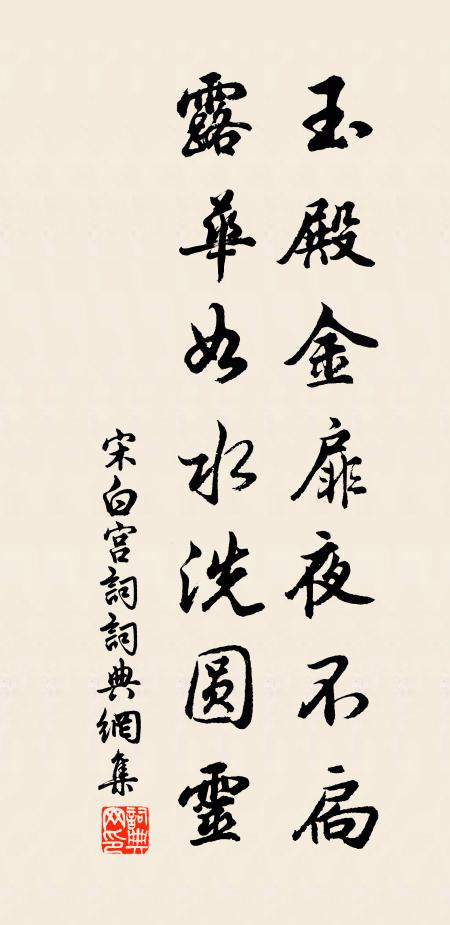 玉殿金扉夜不扃
露華如水洗圓靈
宋白宮詞詞典網集
詞典網印